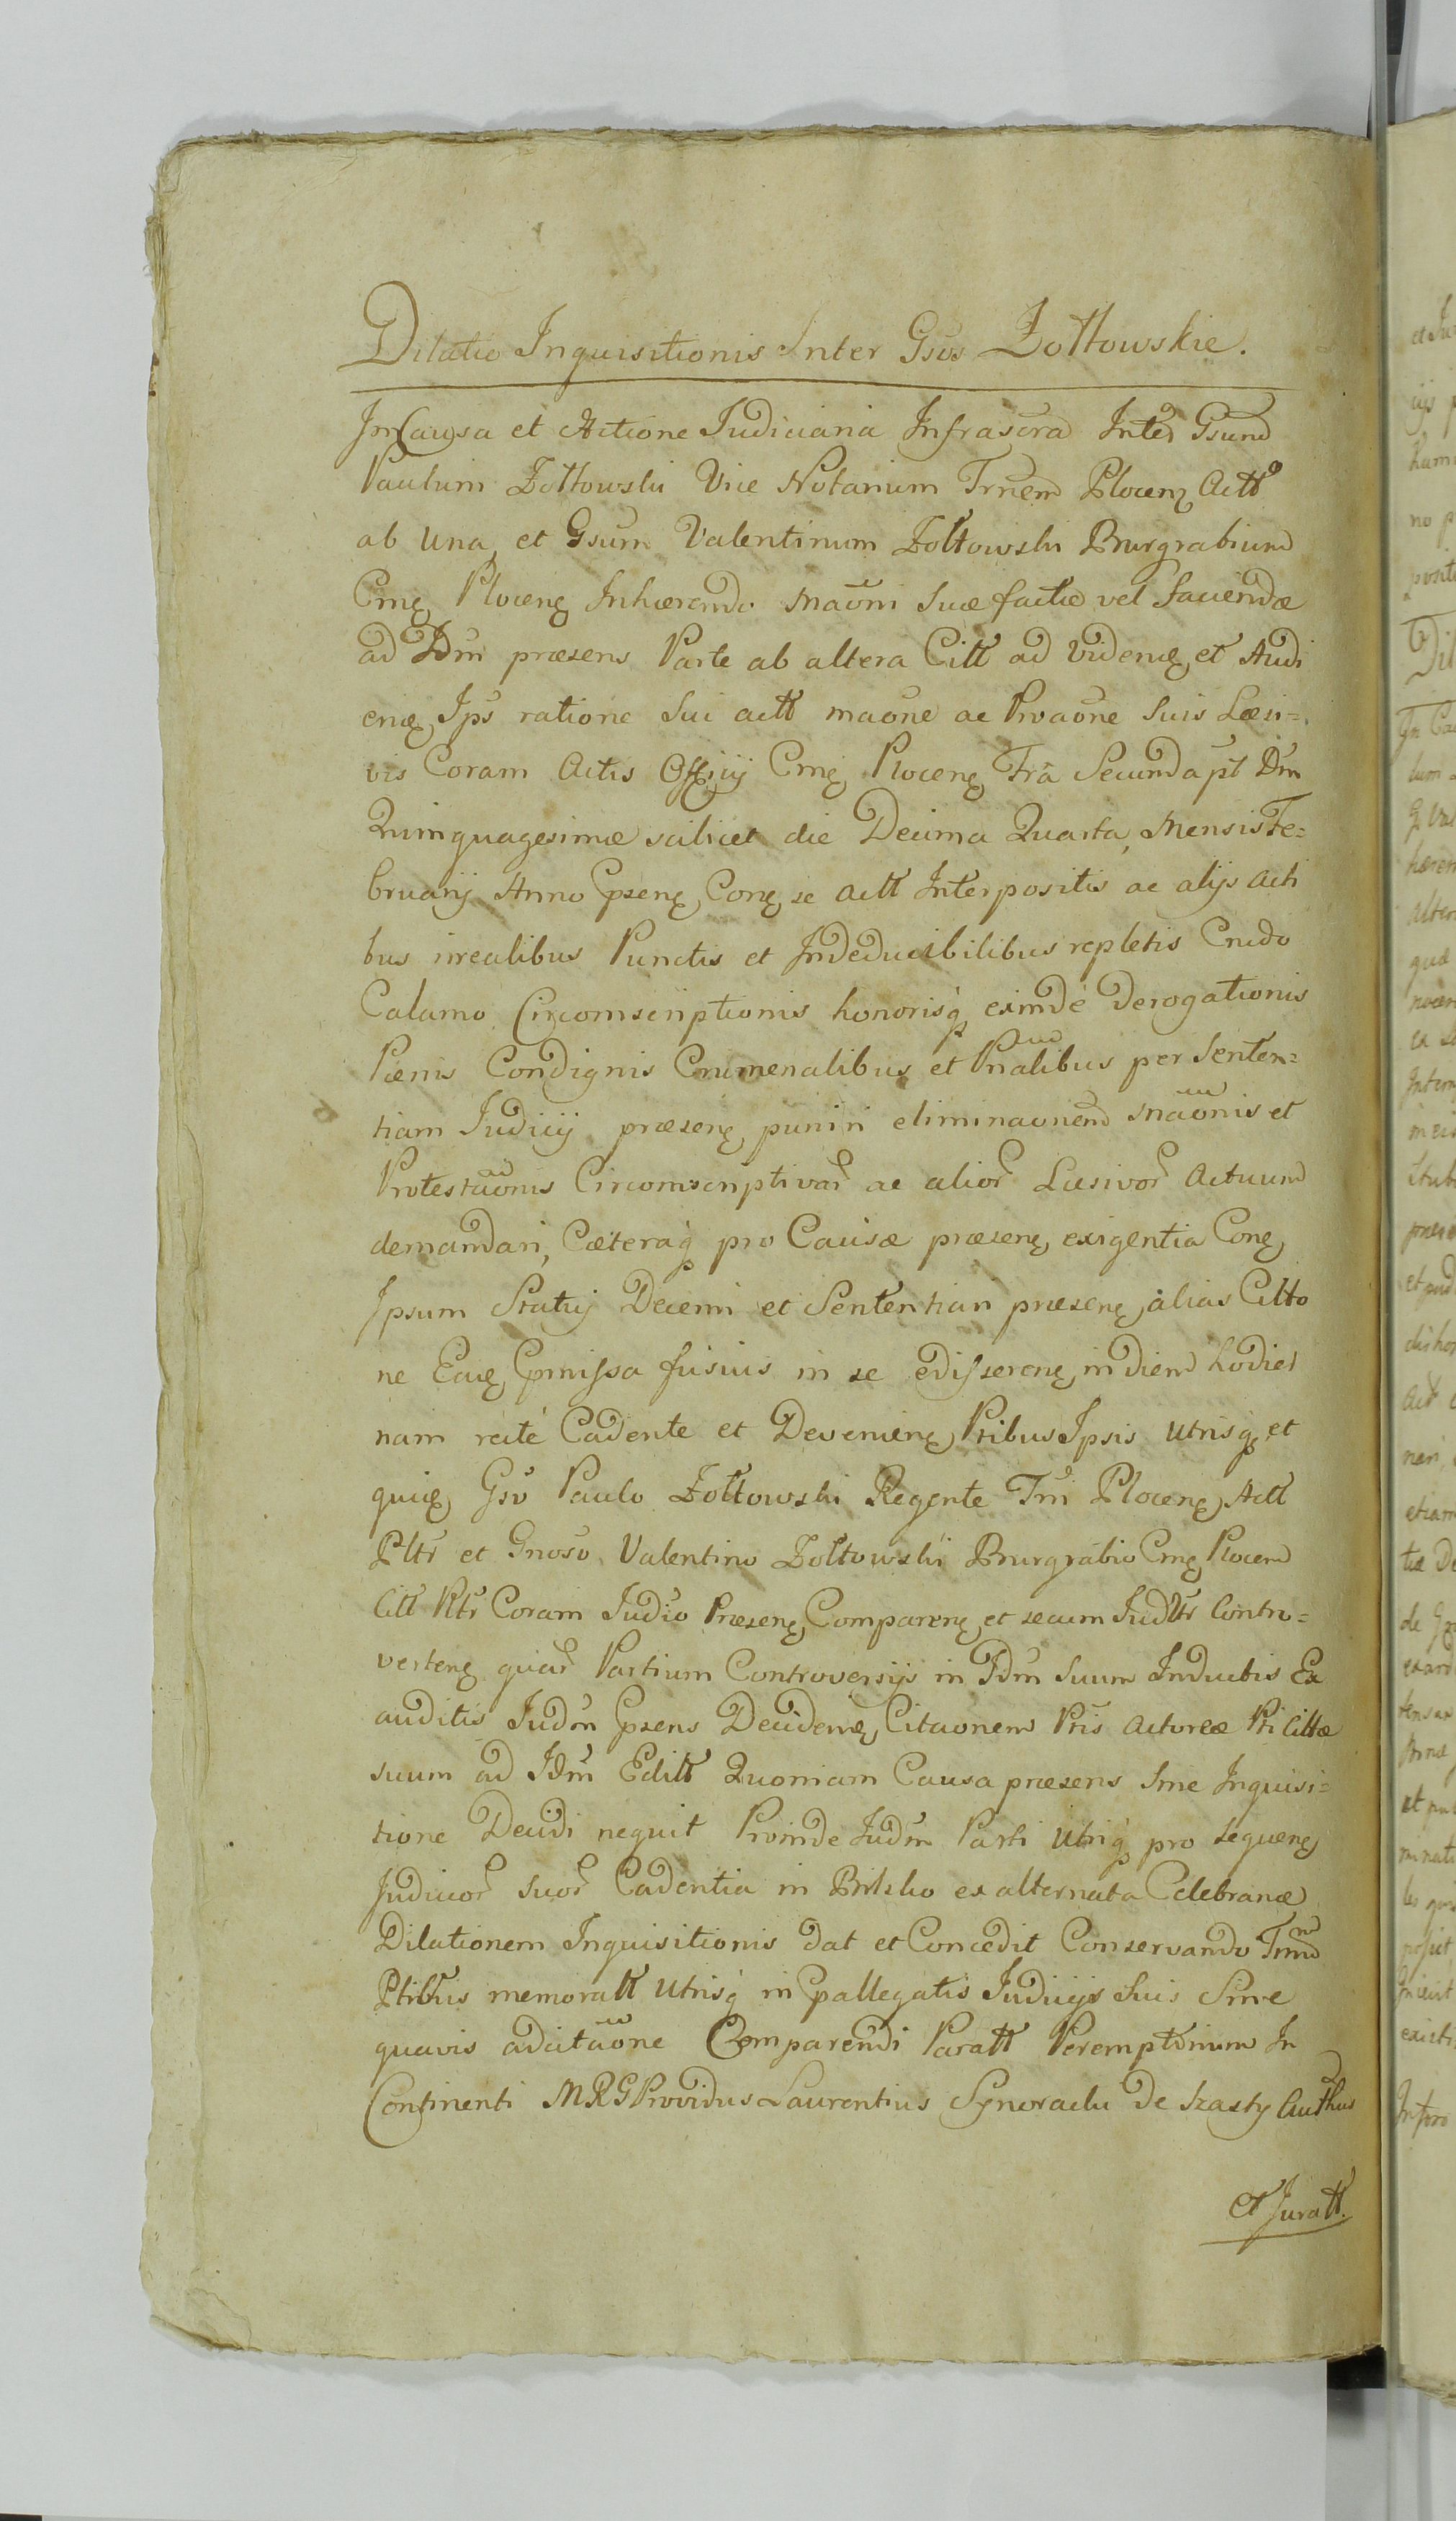 Dilatio Inquisitionis Inter Gsos Żołtowskie.
In Causa et Actione Judiciaria Infrascra Inter Gsum
Paulum Żołtowski Vice Notarium Trnem Plocen Actt
ab una, et Gsum Valentinum Żołtowski Burgrabium
Crnę Plocenę Inhærendo Maoni Suæ factæ vel Faciendæ
ad Jdm præsens Parte ab altera Citt ad Videnę et Audi
enę Jps ratione Sui actt maone ac Prõaone Suis Læsi=
vis Coram Actis Officij Crnę Plocenę Fra Secunda pt Dm
Quinquagesimæ scilicet die Decima Quarta Mensis Fe=
bruarij Anno Cpsenę Conę se actt Interpositis ac alijs acti
bus irrealibus Punctis et Indeducibilibus repletis Crudo
Calamo Circomscriptionis honorisq eximdé Derogationis
Pœnis Condignis Crimenalibus et Pnalibus per Senten=
tiam Judicij præsenę puniri eliminaonem Maonis et
Protestaonis Circomscriptivar ac alior Læsivor Actuum
demandari, Cæteraq pro Causæ præsenę exigentia Conę
Ipsum Statuj Decerni et Sententiari præsenę alias Citto
ne Eauę Cpmissa fusius in se edisserenę in diem hodier
nam recté Cadente et Devenienę Ptibus Ipsis utrisq et
quidę Gso Paulo Żołtowski Regente Trni Plocenę Actt
Pltr et Gnoso Valentino Żołtowski Burgrabio Crnę Plocen
Citt Pltr Coram Judio Præsenę Comparenę et secum Judltr Contro=
vertenę quar Partium Controversijs in Jdm Suum Inductis Ex
auditis Judm Cpsens Decidendę Citaonem Ptis Actoreæ Pti Cittæ
suum ad Jdm Editt Quoniam Causa præsens Sine Inquisi=
tione Decidi nequit Proinde Judm Parti Utriq pro sequenę
Judicior Suor Cadentia in Bielsko ex alternata Celebranæ
Dilationem Inquisitionis dat et Concedit Conservando Trnum
Ptibus memoratt Utrisq in Cpallegatis Judicijs Suis Sine
quavis adcitaone Comparendi Paratt Peremptorium In
Continenti MRG Providus Laurentius Synoracki De Szasty Authus
et Juratt.